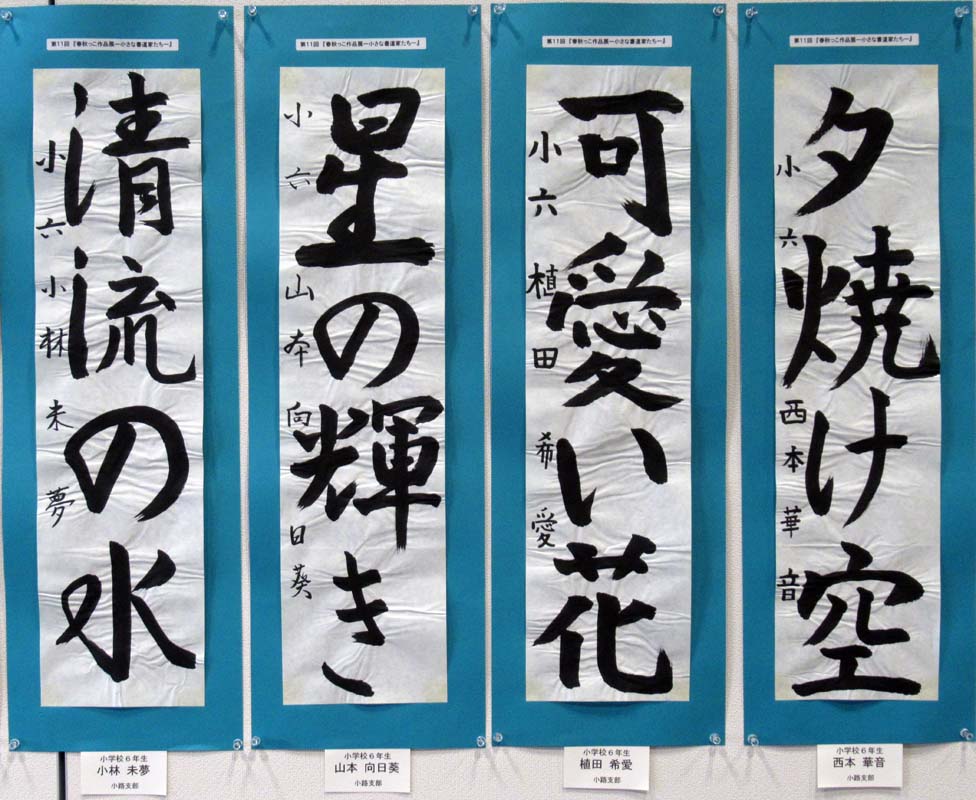 第11回『春秋っこ作品展ー小さな書道家たちー』
夕焼け空
小六 西本華音
小学校6年生
西本 華音
小路支部
第11回『春秋っこ作品展ー小さな書道家たちー』
可愛い花
小六 植田希愛
小学校6年生
植田 希愛
小路支部
第11回『春秋っこ作品展ー小さな書道家たちー』
星の輝き
小六 山本向日葵
小学校6年生
山本 向日葵
小路支部
第11回『春秋っこ作品展ー小さな書道家たちー』
清流の水
小六 小林未夢
小学校6年生
小林 未夢
小路支部